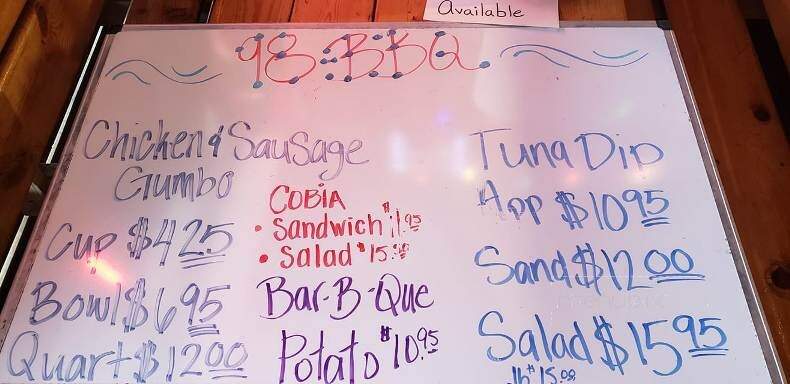 Available
98-BBQ
Chicken & Sausage
Gumbo
Cup $4 25
Bowl $6 95
Quart $12 00
COBIA
• Sandwich $11.95
• Salad $15.
Bar-B-Que
Potato $10.95
Tuna Dip
App $10 95
Sand $12 00
Salad $15 95
lb $15.00